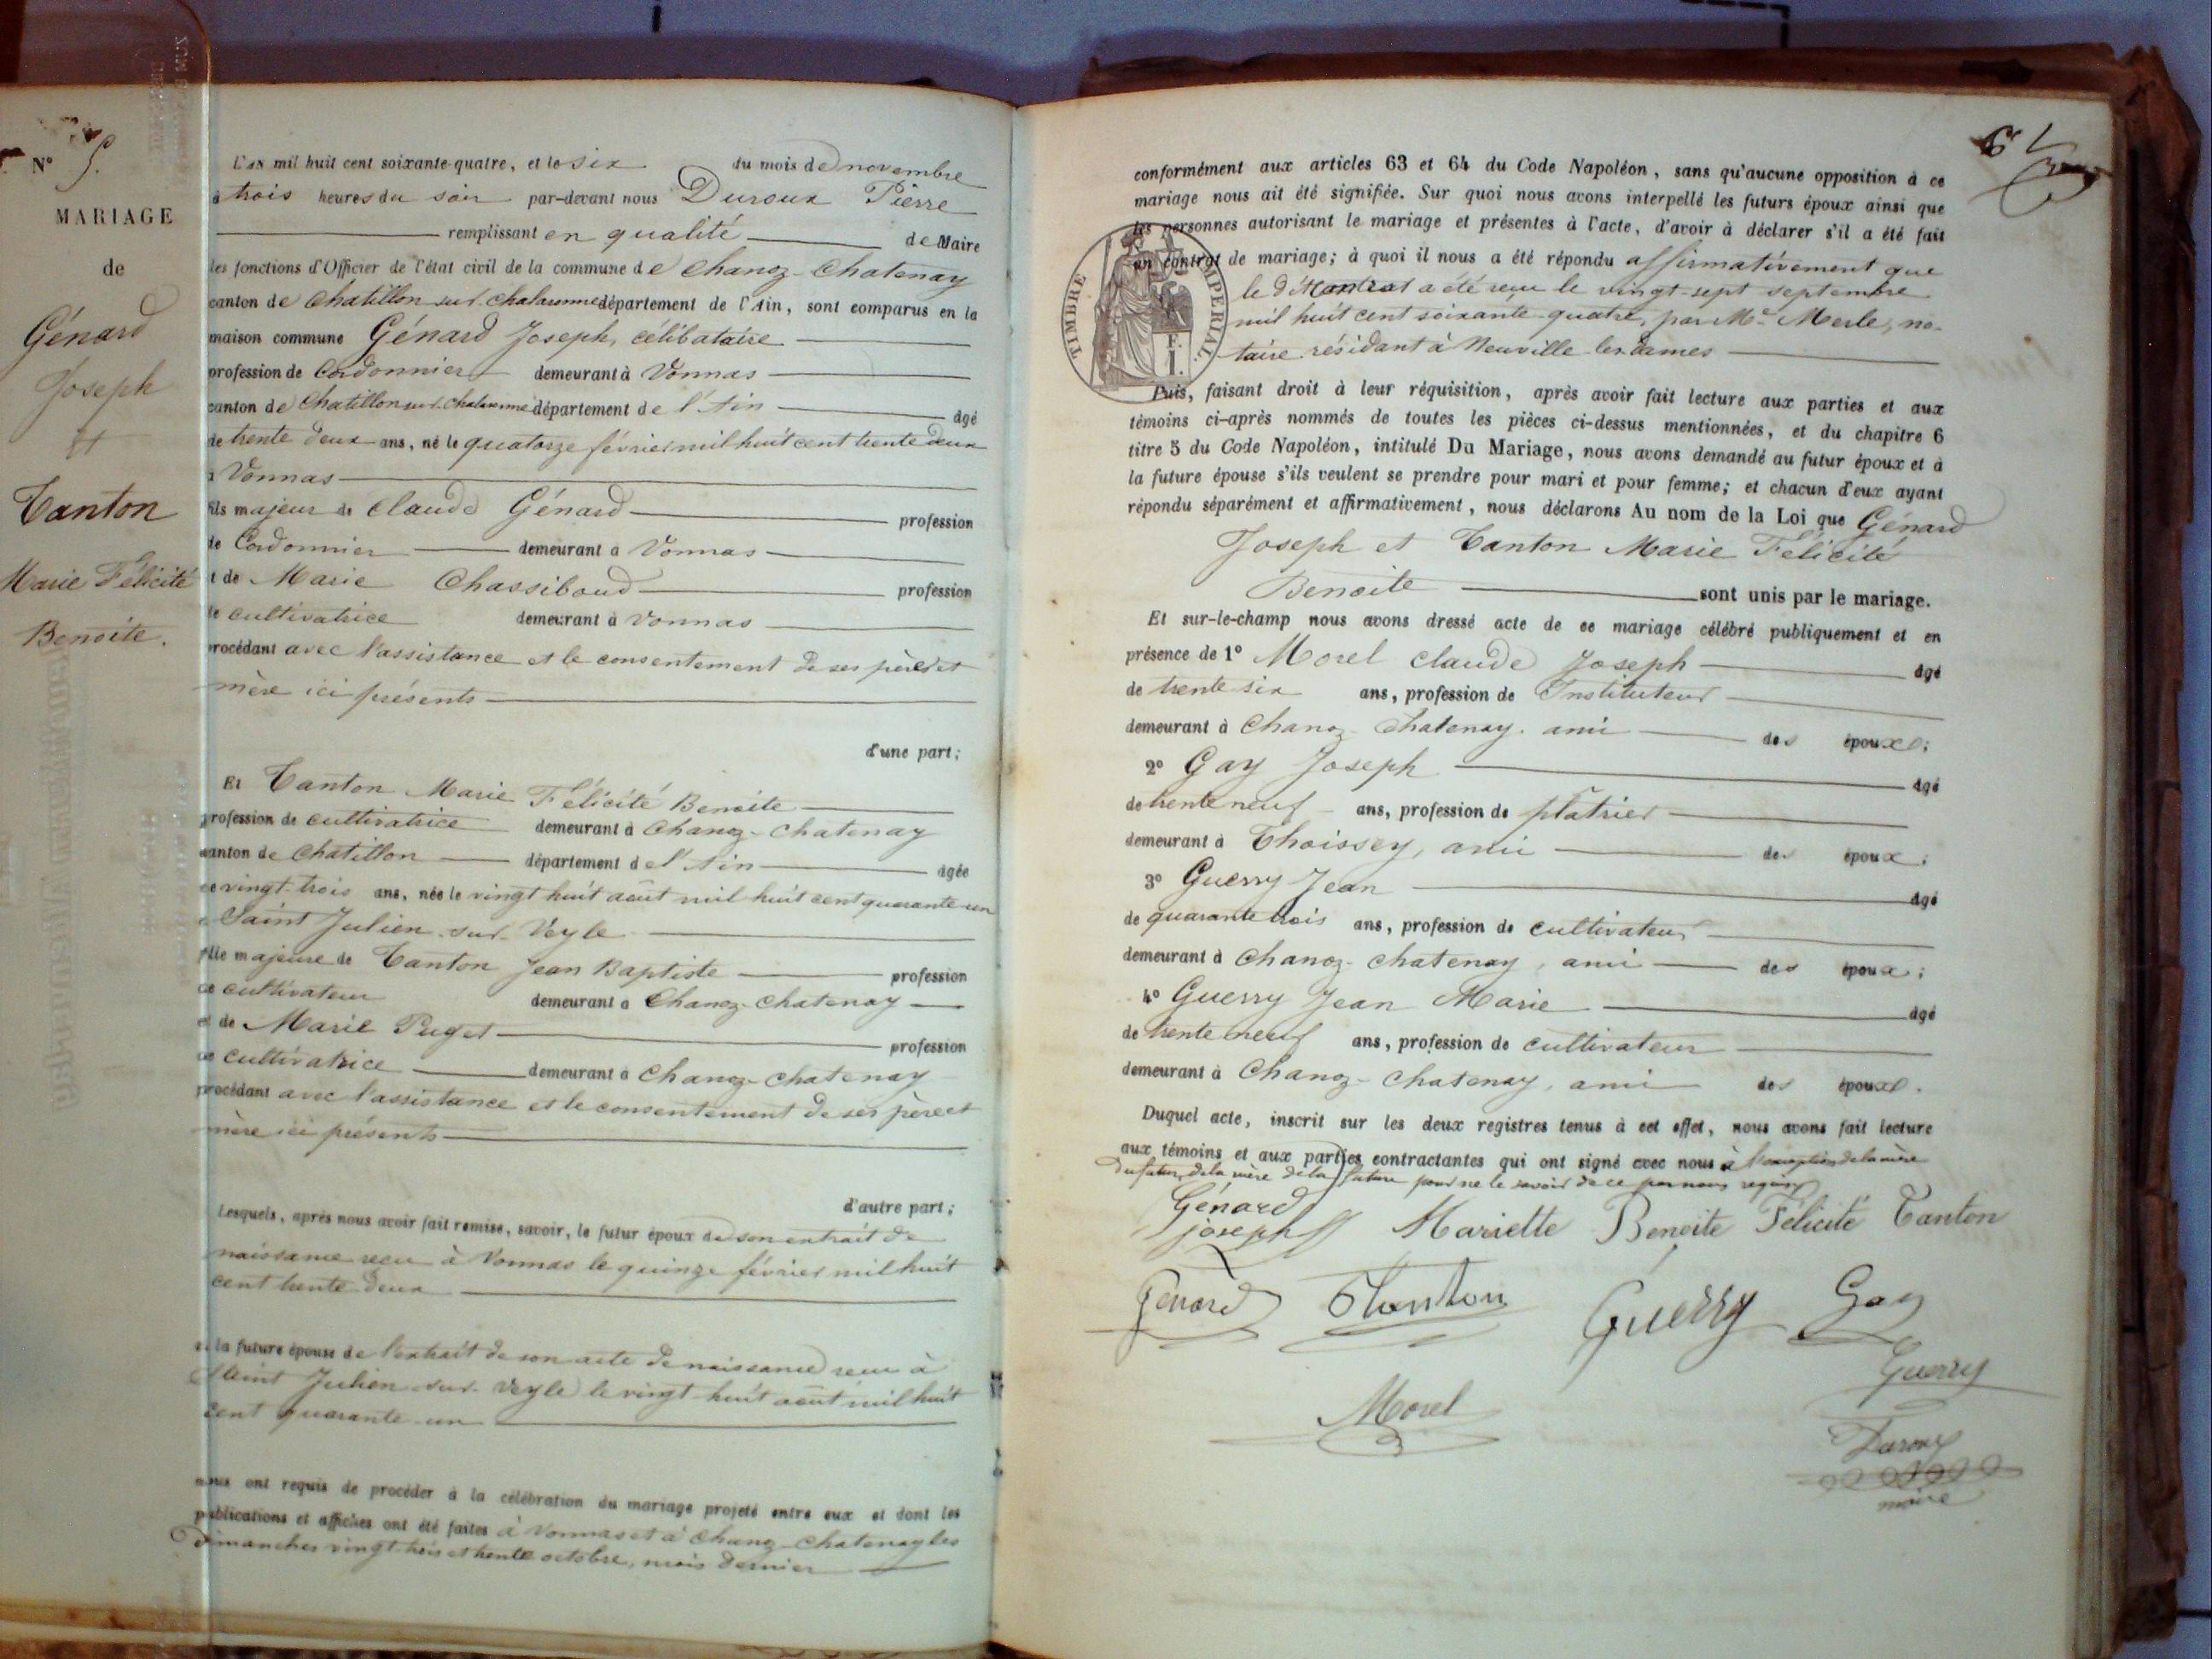 N° 5.
MARIAGE
de
Génard
Joseph
et
Tanton
Marie Félicité
Benoite.
L'AN mil huit cent soixante-quatre, et le six du mois de novembre
à trois heures du soir par-devant nous Duroux Pierre
remplissant en qualité de Maire
les fonctions d'Officier de l'état civil de la commune de Chanoz-Chatenay
canton de Chatillon-sur-Chalaronne département de l'Ain, sont comparus en la
maison commune Génard Joseph, célibataire
profession de Cordonnier demeurant à Vonnas
canton de Chatillon sur Chalaronne département de l'Ain âgé
de trente deux ans, né le quatorze février mil huit cent trente deux
à Vonnas
fils majeur de Claude Génard profession
de Cordonnier demeurant à Vonnas
et de Marie Chassiboud profession
de cultivatrice demeurant à Vonnas
procédant avec l'assistance et le consentement de ses père et
mère ici présents
d'une part;
Et Tanton Marie Félicité Benoite
profession de cultivatrice demeurant à Chanoz-Chatenay
canton de Chatillon département de l'Ain âgée
de vingt-trois ans, née le vingt huit août mil huit cent quarante un
à Saint Julien-sur-Veyle
fille majeure de Tanton Jean Baptiste profession
de cultivateur demeurant à Chanoz-Chatenay
et de Marie Puget profession
de cultivatrice demeurant à Chanoz-Chatenay
procédant avec l'assistance et le consentement de ses père et
mère ici présents
d'autre part;
Lesquels, après nous avoir fait remise, savoir, le futur époux de son extrait de
naissance reçu à Vonnas le quinze février mil huit
cent trente-deux
et la future épouse de l'extrait de son acte de naissance reçu à
Saint Julien-sur-Veyle le vingt-huit août mil huit
cent quarante-un
nous ont requis de procéder à la célébration du mariage projeté entre eux et dont les
publications et affiches ont été faites à Vonnas et à Chanoz-Chatenay les
Dimanches vingt-trois et trente octobre, mois dernier
conformément aux articles 63 et 64 du Code Napoléon, sans qu'aucune opposition à ce
mariage nous ait été signifiée. Sur quoi nous avons interpellé les futurs époux ainsi que
les personnes autorisant le mariage et présentes à l'acte, d'avoir à déclarer s'il a été fait
un contrat de mariage; à quoi il nous a été répondu affirmativement que
le dit contrat a été reçu le vingt-sept septembre
mil huit cent soixante-quatre, par Me Merle, no-
taire résidant à Neuville-les-Dames
TIMBRE IMPERIAL
Puis, faisant droit à leur réquisition, après avoir fait lecture aux parties et aux
témoins ci-après nommés de toutes les pièces ci-dessus mentionnées, et du chapitre 6
titre 5 du Code Napoléon, intitulé Du Mariage, nous avons demandé au futur époux et à
la future épouse s'ils veulent se prendre pour mari et pour femme; et chacun d'eux ayant
répondu séparément et affirmativement, nous déclarons Au nom de la Loi que Génard
Joseph et Tanton Marie Félicité
Benoite sont unis par le mariage.
Et sur-le-champ nous avons dressé acte de ce mariage célébré publiquement et en
présence de 1° Morel Claude Joseph âgé
de trente six ans, profession de Instituteur
demeurant à Chanoz-Chatenay, ami des époux;
2° Gay Joseph âgé
de trente neuf ans, profession de plâtrier
demeurant à Thoissey, ami des époux;
3° Guerry Jean âgé
de quarante trois ans, profession de cultivateur
demeurant à Chanoz-Chatenay, ami des époux;
4° Guerry Jean Marie âgé
de trente neuf ans, profession de cultivateur
demeurant à Chanoz-Chatenay, ami des époux.
Duquel acte, inscrit sur les deux registres tenus à cet effet, nous avons fait lecture
aux témoins et aux parties contractantes qui ont signé avec nous à l'exception de la mère
du futur, de la mère de la future pour ne le savoir de ce par nous requis
Génard
joseph Mariette Benoite Félicité Tanton
Génard Tanton Guerry Gay
Guerry
Morel
Duroux
maire